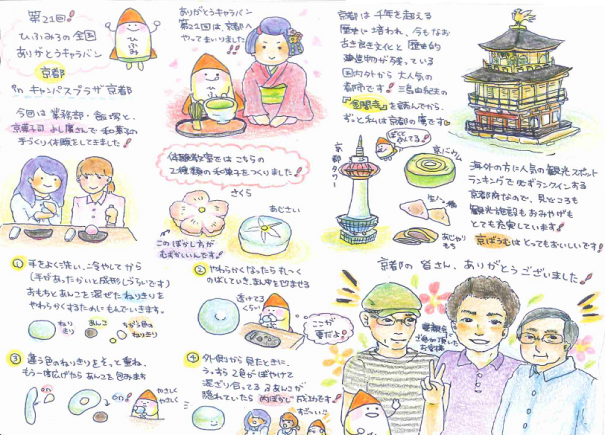 第21回!
ひふみろの全国
ありがとうキャラバン
京都
in キャンパスプラザ 京都
ひふみ
今回は 業務部・飯塚と、
京菓子司 よし廣さんで 和菓子の
手づくり体験をしてきました!
ありがとうキャラバン
第21回は、京都へ
やって きいりました!
体験教室では こちらの
2種類の 和菓子をつくりました!
さくら
あじさい
このぼかし方が
むずかしいんです。
京都は 千年を超える
歴史に培われ、今もなお
古き良き文化と 歴史的
建造物が残っている
国内外から 大人気の
都市です! 三島由紀夫の
『金閣寺』を読んでから、
ずっと私は京都の虜です
京都タワー
京ばあむ
生八ツ橋
あじゃり
もち
海外の方に人気の観光スポット
ランキングで 必ずランクインする
京都府なので、見どころも
観光施設も おみやげも
とても充実しています!
京ばあむは とってもおいしいです!
① 手をよく洗い、冷やしてから
(手があったかいと成形しづらいです)
おもちとあんこを混ぜた ねりきりを
やわらかくするためにもんでいきます。
ねりきり
あんこ
ちがう色の
ねりきり
② やわらかくなったら 丸〜く
のばしていき、まん中を凹ませる
透けてる
くらい
ここが
重要だよ!
③ 違う色のねりきりを そって重ね、
もう一度広げたら あんこを包みます
on!
on!
やさしく
やさしく
④ 外側から見たときに、
うっすら 2色がぼやけて
混ざり合ってる あんこが
隠れていたら 内ぼかし 成功です!
すごーい!!
京都の 皆さん、ありがとうございました!
懇親会で
ご一緒頂いた
お客様